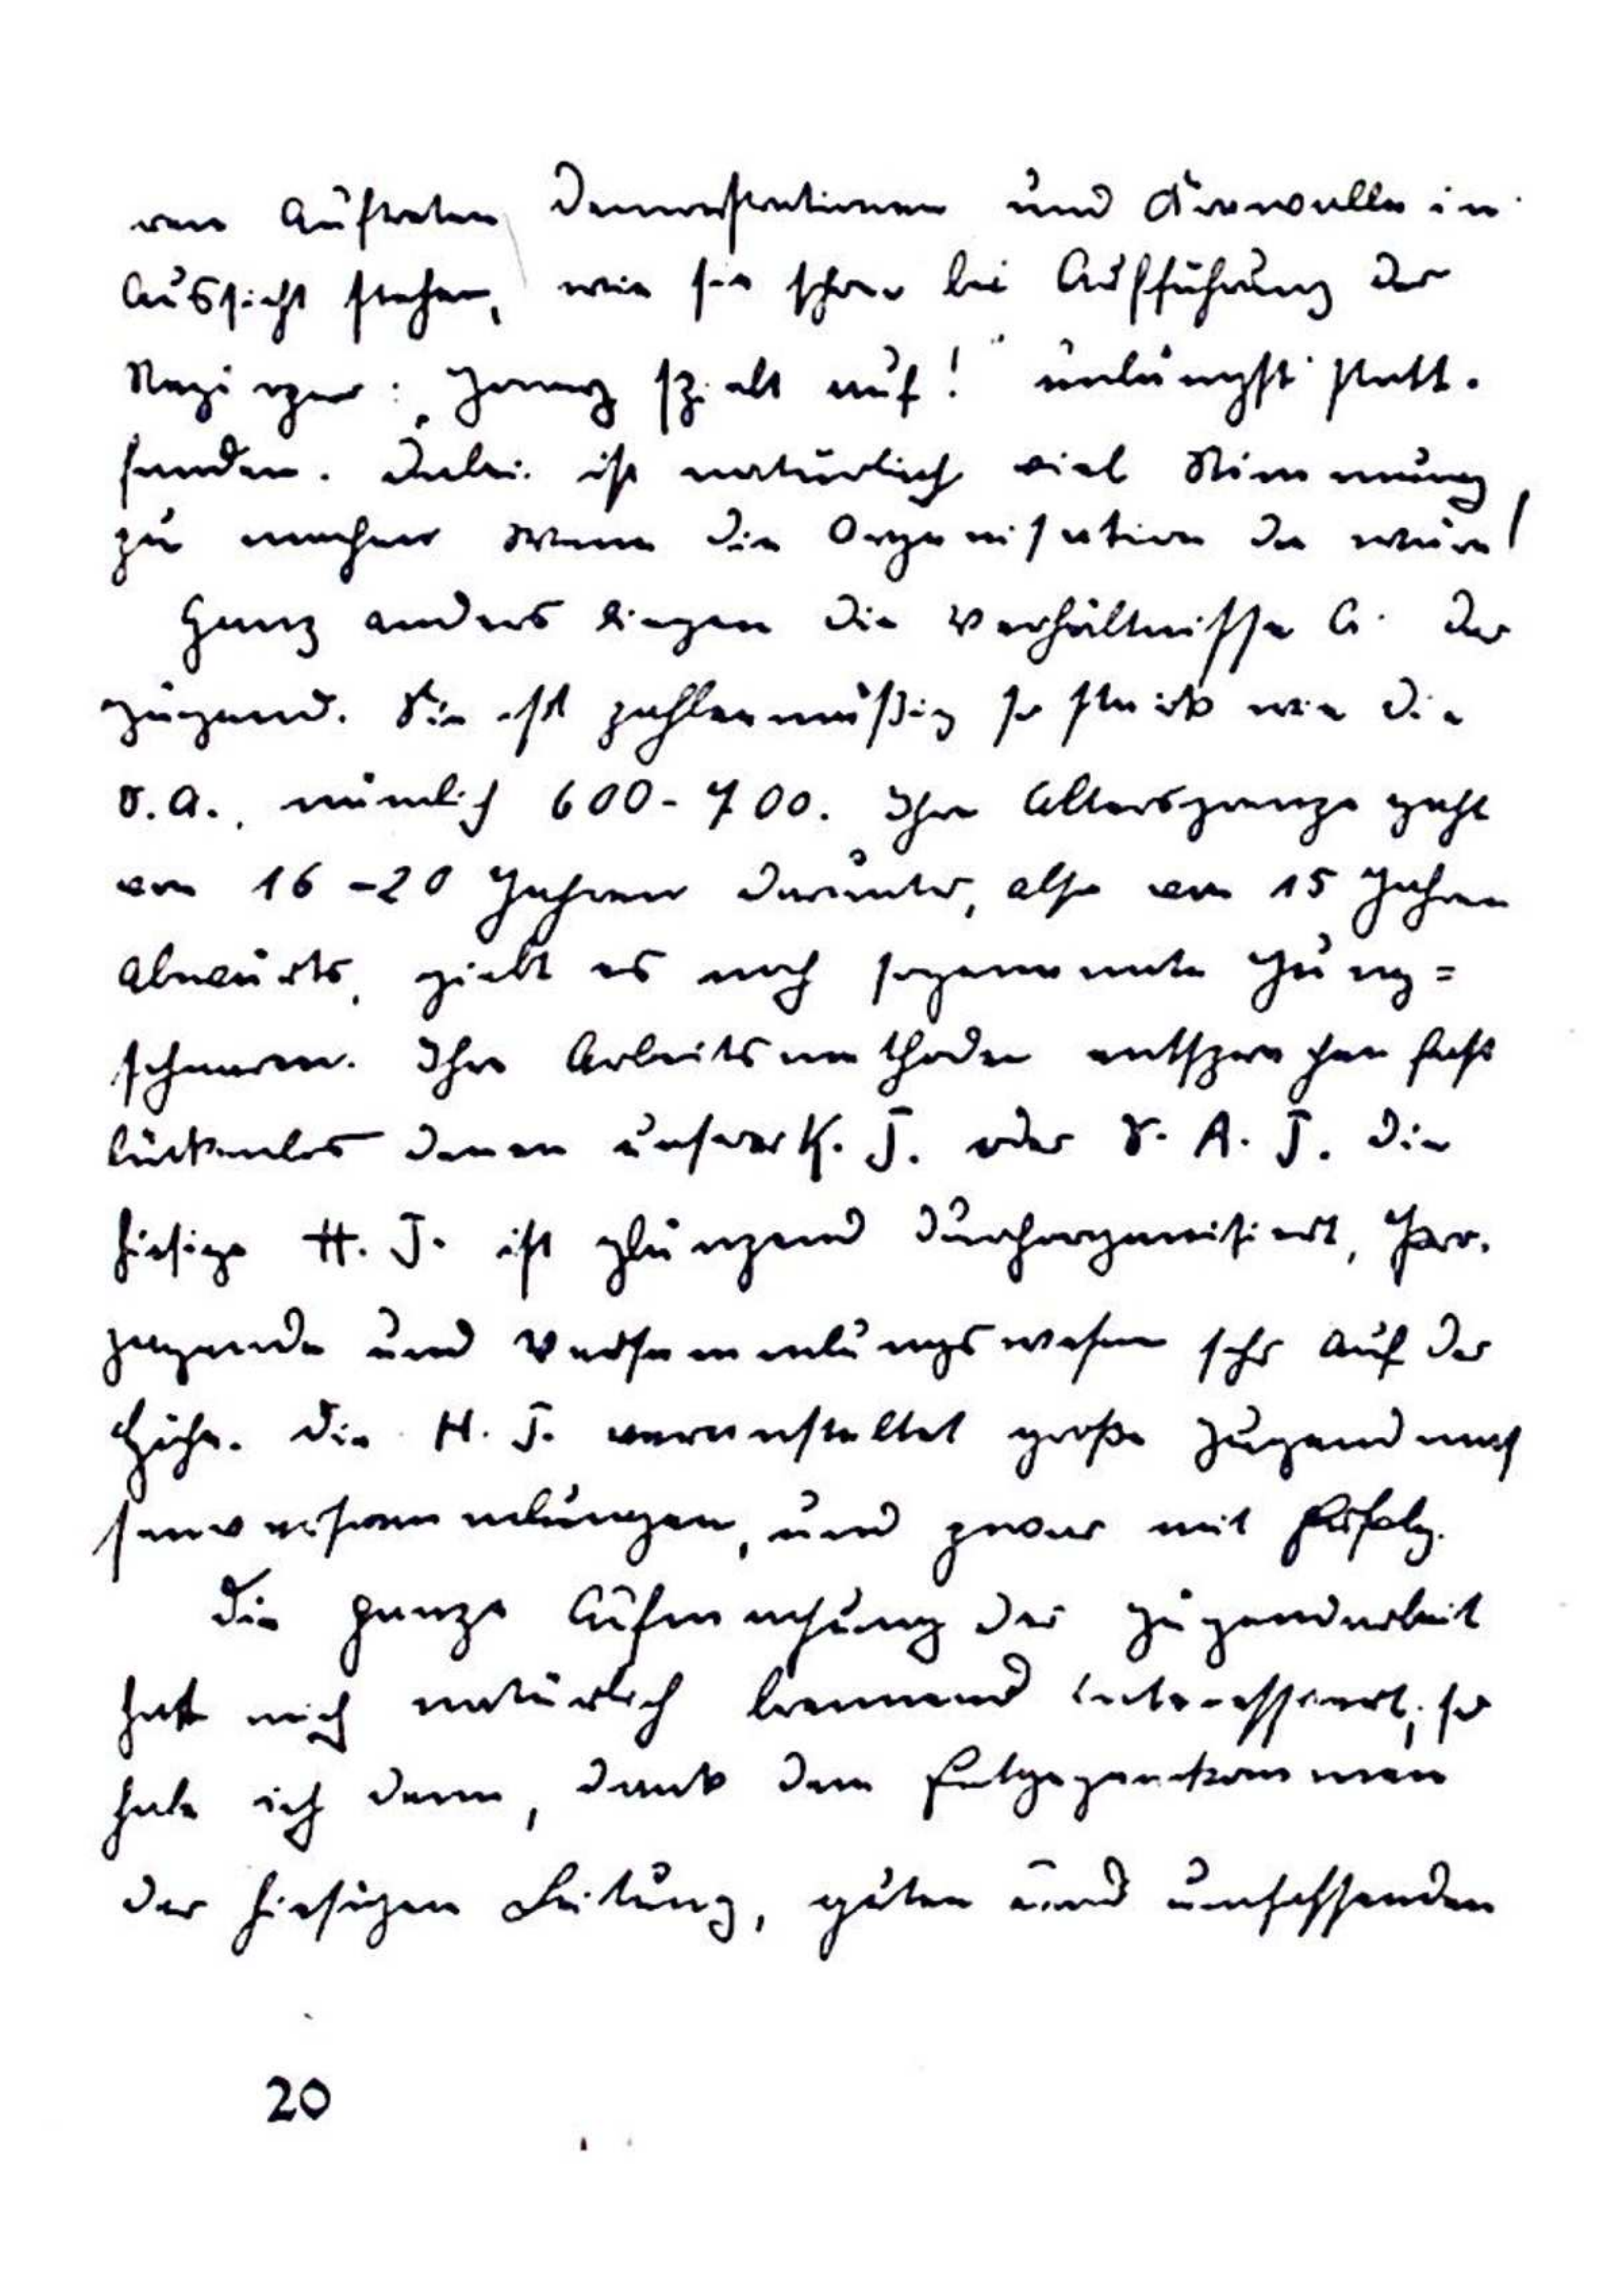 ren Auftreten Demonstrationen und Krawalle in
Aussicht stehen, wie sie schon bei Aufführung der
Negeroper: „Jonny spielt auf!" unlängst statt-
fanden. Dabei ist natürlich viel Stimmung
zu machen wenn die Organisation da wäre!
Ganz anders liegen die Verhältnisse bei der
Jugend. Sie ist zahlenmäßig so stark wie die
S.A., nämlich 600-700. Ihre Altersgrenze geht
von 16-20 Jahren darunter, also von 15 Jahren
abwärts, giebt es noch sogenannte Jung=
scharen. Ihre Arbeitsmethoden entsprechen fast
lückenlos denen unserer K. J. oder S. A. J. Die
hiesige H. J. ist glänzend durchorganisiert, Pro-
paganda und Versammlungswesen sehr auf der
Höhe. Die H. J. veranstaltet große Jugendmas
senversammlungen, und zwar mit Erfolg.
Die ganze Aufmachung der Jugendarbeit
hat mich natürlich brennend interessiert, so
habe ich denn, dank dem Entgegenkommen
der hiesigen Leitung, guten und umfassenden
20